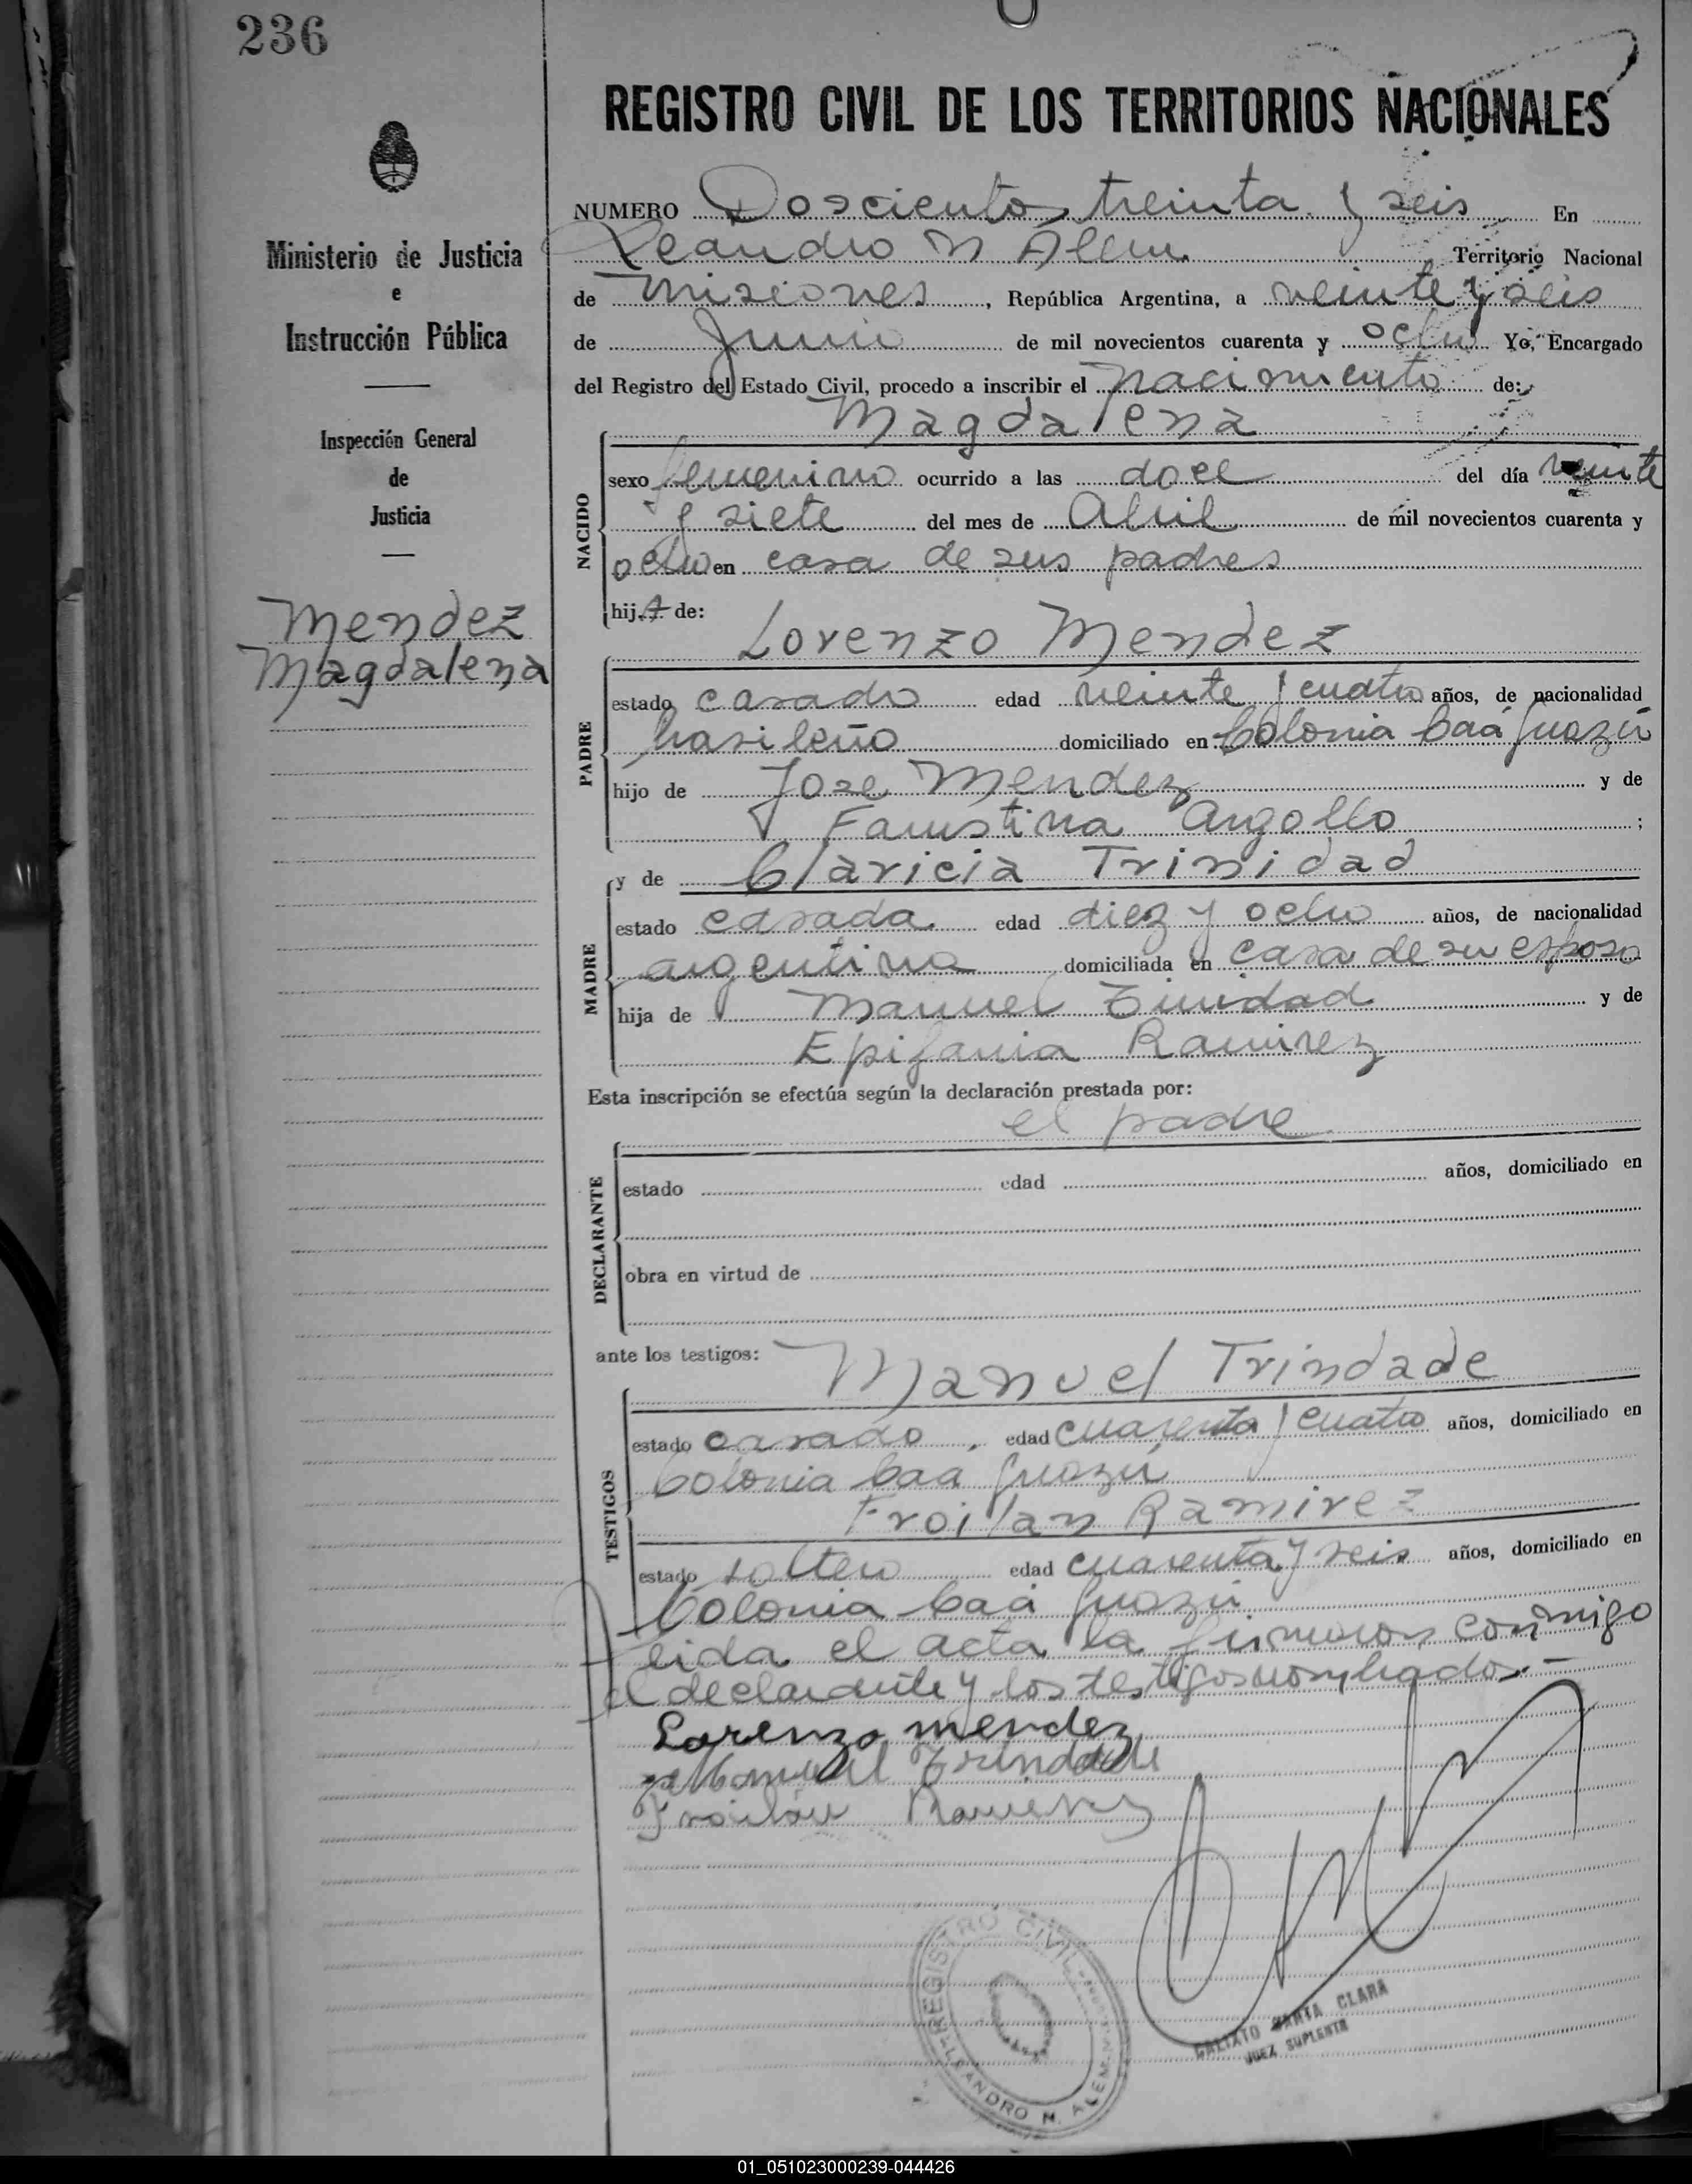 236
REGISTRO CIVIL DE LOS TERRITORIOS NACIONALES
Ministerio de Justicia
e
Instrucción Pública
Inspección General
de
Justicia
Mendez
Magdalena
NUMERO Doscientos treinta y seis En
Leandro N Alem Territorio Nacional
de Misiones, República Argentina, a veinte y seis
de Junio de mil novecientos cuarenta y ocho Yo, Encargado
del Registro del Estado Civil, procedo a inscribir el nacimiento de:
Magdalena
NACIDO
sexo femenino ocurrido a las doce del día veinte
y siete del mes de Abril de mil novecientos cuarenta y
ocho en casa de sus padres
hij.A de:
Lorenzo Mendez
PADRE
estado casado edad veinte y cuatro años, de nacionalidad
brasileño domiciliado en Colonia Caá Guazú
hijo de Jose Mendez y de
Faustina Argollo ;
y de Claricia Trinidad
MADRE
estado casada edad diez y ocho años, de nacionalidad
argentina domiciliada en casa de su esposo
hija de Manuel Trinidad y de
Epifania Ramirez
Esta inscripción se efectúa según la declaración prestada por:
el padre
DECLARANTE
estado edad años, domiciliado en
obra en virtud de
ante los testigos:
Manuel Trindade
TESTIGOS
estado casado, edad cuarenta y cuatro años, domiciliado en
Colonia Caá Guazú
Froilan Ramirez
estado soltero edad cuarenta y seis años, domiciliado en
Colonia Caá Guazú
Leida el acta la firmaron conmigo
el declarante y los testigos nombrados.-
Lorenzo mendez
Manuel Trindade
Froilan Ramirez
REGISTRO CIVIL
LEANDRO N. ALEM
CALIXTO SANTA CLARA
JUEZ SUPLENTE
01_051023000239-044426